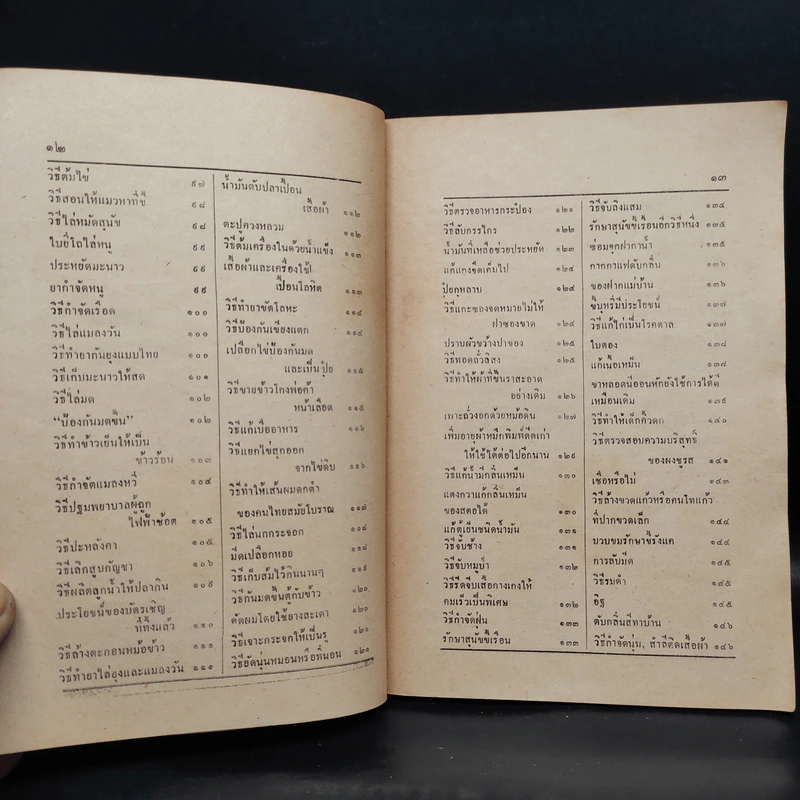 ๑๒
วิธีต้มไข่ ๙๗
วิธีสอนให้แมวหาที่ขี้ ๙๘
วิธีไล่หมัดสุนัข ๙๘
ใบยี่โถไล่หนู ๙๙
ประหยัดมะนาว ๙๙
ยากำจัดหนู ๙๙
วิธีกำจัดเรือด ๑๐๐
วิธีไล่แมลงวัน ๑๐๐
วิธีทำยากันยุงแบบไทย ๑๐๐
วิธีเก็บมะนาวให้สด ๑๐๑
วิธีไล่มด ๑๐๒
“ป้องกันมดขึ้น” ๑๐๒
วิธีทำข้าวเย็นให้เป็น
ข้าวร้อน ๑๐๓
วิธีกำจัดแมลงหวี่ ๑๐๔
วิธีปฐมพยาบาลผู้ถูก
ไฟฟ้าช๊อต ๑๐๕
วิธีปะหลังคา ๑๐๕
วิธีเลิกสูบกัญชา ๑๐๖
วิธีผลิตลูกน้ำให้ปลากิน ๑๐๙
ประโยชน์ของบัตรเชิญ
ที่ทิ้งแล้ว ๑๑๐
วิธีล้างตะกอนหม้อข้าว ๑๑๑
วิธีทำยาไล่ยุงและแมลงวัน ๑๑๑
น้ำมันตับปลาเปื้อน
เสื้อผ้า ๑๑๒
ตะปูควงหลวม ๑๑๒
วิธีต้มเครื่องในด้วยน้ำแข็ง ๑๑๓
เสื้อผ้าและเครื่องใช้
เปื้อนโลหิต ๑๑๓
วิธีทำยาขัดโลหะ ๑๑๔
วิธีป้องกันเขียงแตก ๑๑๔
เปลือกไข่ป้องกันมด
และเป็นปุ๋ย ๑๑๕
วิธีขายข้าวโกงพ่อค้า
หน้าเลือด ๑๑๕
วิธีแก้เบื่ออาหาร ๑๑๖
วิธีแยกไข่สุกออก
จากไข่ดิบ ๑๑๖
วิธีทำให้เส้นผมดกดำ
ของคนไทยสมัยโบราณ ๑๑๗
วิธีไล่นกกระจอก ๑๑๘
มีดเปลือกหอย ๑๑๘
วิธีเก็บส้มไว้กินนานๆ ๑๑๙
วิธีกันมดขึ้นตู้กับข้าว ๑๒๐
ดัดผมโดยใช้ยางสะเดา ๑๒๐
วิธีเจาะกระจกให้เป็นรู ๑๒๐
วิธียัดนุ่นหมอนหรือที่นอน ๑๒๑
๑๓
วิธีตรวจอาหารกระป๋อง ๑๒๑
วิธีลับกรรไกร ๑๒๓
น้ำมันที่เหลือช่วยประหยัด ๑๒๓
แก้แกงจืดเค็มไป ๑๒๔
ปุ๋ยกุหลาบ ๑๒๔
วิธีแกะซองจดหมายไม่ให้
ฝาซองขาด ๑๒๔
ปราบผัวขว้างปาของ ๑๒๕
วิธีทอดถั่วลิสง ๑๒๕
วิธีทำให้ผ้าที่ขึ้นราสะอาด
อย่างเดิม ๑๒๖
เพาะถั่วงอกด้วยหม้อดิน ๑๒๗
เพิ่มอายุผ้าหมึกพิมพ์ดีดเก่า
ให้ใช้ได้ต่อไปอีกนาน ๑๒๙
วิธีแก้น้ำมีกลิ่นเหม็น ๑๓๐
แตงกวาแก้กลิ่นเหม็น
ของสตอได้ ๑๓๐
แก้ตู้เย็นชนิดน้ำมัน ๑๓๑
วิธีจับช้าง ๑๓๑
วิธีจับหมูป่า ๑๓๒
วิธีรีดจีบเสื้อกางเกงให้
คมเร็วเป็นพิเศษ ๑๓๒
วิธีกำจัดฝุ่น ๑๓๓
รักษาสุนัขขี้เรื้อน ๑๓๓
วิธีจับลิงแสม ๑๓๔
รักษาสุนัขขี้เรื้อนอีกวิธีหนึ่ง
ซ่อมจุกฝากาน้ำ ๑๓๕
กากกาแฟดับกลิ่น ๑๓๖
ของฝากแม่บ้าน ๑๓๖
ขี้บุหรี่มีประโยชน์ ๑๓๗
วิธีแก้ไก่เป็นโรคตาล ๑๓๗
ใบตอง ๑๓๘
แก้เนื้อเหม็น ๑๓๘
ขาหลอดนีออนหักยังใช้การได้ดี
เหมือนเดิม ๑๓๙
วิธีทำให้เด็กคิ้วดก ๑๔๐
วิธีตรวจสอบความบริสุทธิ์
ของผงชูรส ๑๔๑
เชื่อหรือไม่ ๑๔๓
วิธีล้างขวดแก้วหรือคนโทแก้ว
ที่ปากขวดเล็ก ๑๔๔
บวบขมรักษาขี้รังแค ๑๔๔
การลับมีด ๑๔๕
วิธีรมดำ ๑๔๕
อิฐ ๑๔๕
ดับกลิ่นสีทาบ้าน ๑๔๖
วิธีกำจัดนุ่น, สำลีติดเสื้อผ้า ๑๔๖